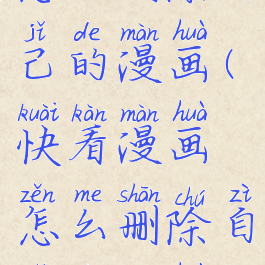 jǐ de màn huà
己的漫画(
kuài kàn màn huà
快看漫画
zěn me shān chú zì
怎么删除自